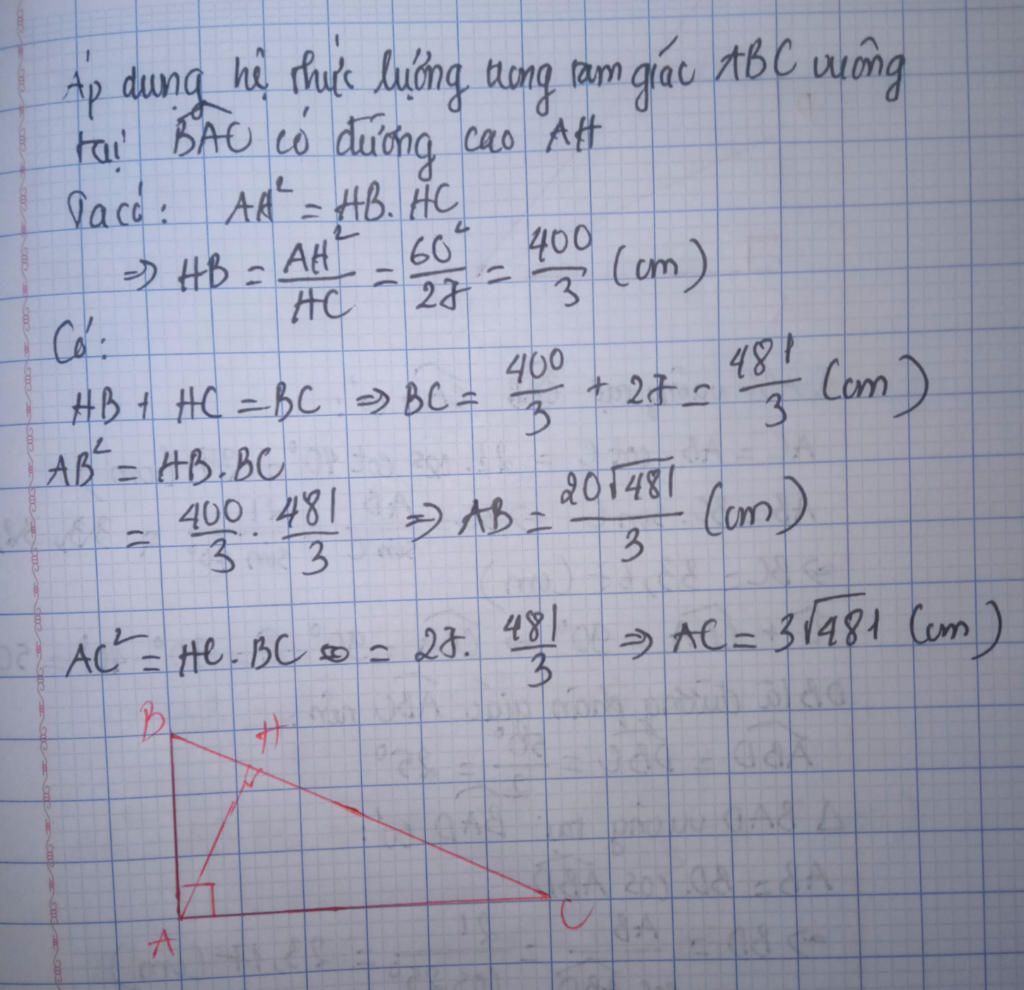 Áp dụng hệ thức lượng trong tam giác ABC vuông
tại BAC có đường cao AH
Ta có: AH² = HB. HC
⇒ HB = AH²/HC = 60²/27 = 400/3 (cm)
Có:
HB + HC = BC ⇒ BC = 400/3 + 27 = 481/3 (cm)
AB² = HB.BC
= 400/3 . 481/3 ⇒ AB = 20√481/3 (cm)
AC² = HC.BC = 27. 481/3 ⇒ AC = 3√481 (cm)
B
H
A
C